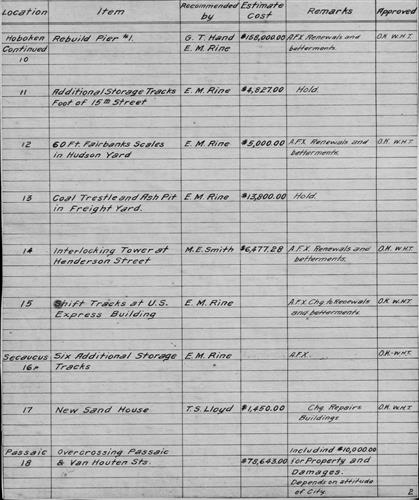 Location Item Recommended by Estimate Cost Remarks Approved
Hoboken Rebuild Pier #1. G. T. Hand $158,000.00 A.F.X. Renewals and O.K. W.H.T.
Continued E. M. Rine betterments.
10
11 Additional Storage Tracks E. M. Rine $4,827.00 Hold.
Foot of 15th Street
12 60 Ft. Fairbanks Scales E. M. Rine $5,000.00 A.F.X. Renewals and O.K. W.H.T.
in Hudson Yard betterments.
13 Coal Trestle and Ash Pit E. M. Rine $13,800.00 Hold.
in Freight Yard.
14 Interlocking Tower at M. E. Smith $6,477.28 A.F.X. Renewals and O.K. W.H.T.
Henderson Street betterments.
15 Shift Tracks at U.S. E. M. Rine A.F.X. Chg. to Renewals O.K. W.H.T.
Express Building and betterments.
Secaucus Six Additional Storage E. M. Rine A.F.X. O.K. W.H.T.
16 Tracks
17 New Sand House T. S. Lloyd $1,450.00 Chg. Repairs O.K. W.H.T.
Buildings
Passaic Overcrossing Passaic Includind $10,000.00
18 & Van Houten Sts. $78,643.00 for Property and
Damages.
Depends on attitude
of City.